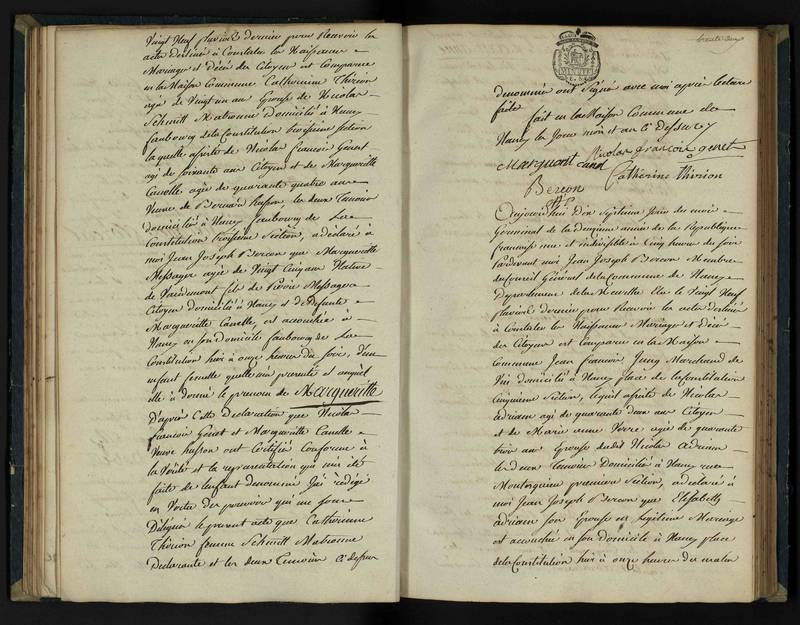 Vingt Neuf pluviôse dernier pour Recevoir les
actes destinés à Constater les Naissances
Mariages et Décès des Citoyens est Comparue
en la Maison Commune Catherinne Thirion
agée de Vingt un ans Epouse de Nicolas
Schmitt Domiciliée à Nancy
faubourg de la Constitution troisieme section
laquelle assistée de Nicolas francois Genet
agé de soixante ans Citoyen et de Margueritte
Canelle agée de quarante quatre ans
Veuve de husson, les deux temoins
domiciliés à Nancy faubourg de La
Constitution troisieme section, a déclaré à
moi Jean Joseph Berson que Margueritte
Messager agée de Vingt Cinq ans Native
de Vaudemont fille de Messager
Citoyen domicilié à Nancy et de Defunte
Margueritte Canelle, est accouchée à
Nancy en son Domicile faubourg de La
Constitution hier à onze heures du soir, d'un
enfant femelle quelle m'a presenté et auquel
elle à donné le prenom de Margueritte
D'après Cette Declaration que Nicolas
francois Genet et Margueritte Canelle
Veuve husson ont Certifié Conforme à
la Vérité et la representation qui m'a été
faite de lenfant denommé J'ai rédigé
en Vertu des pouvoirs qui me sont
Délégués le present acte que Catherinne
Thirion femme Schmitt
Declarante et les deux temoins Ci dessus
trente deux
denommés ont Signé avec moi après lecture
faite
fait en la Maison Commune de
Nancy les Jour mois et an Ci Dessus
Margueritte Canel Nicolas françois genet
Catherine thirion
Berson
Aujourd'hui Dix Septieme Jour du mois
Germinal de la Deuxieme année de la Republique
francoise une et indivisible à Cinq heures du soir
Pardevant moi Jean Joseph Berson Membre
du Conseil Général de la Commune de Nancy
Departement de la Meurthe Elu le Vingt Neuf
pluviôse dernier pour Recevoir les actes destinés
à Constater les Naissances Mariages et Décès
des Citoyens est Comparu en la Maison
Commune Jean francois Jung Marchand de
Vin domicilié à Nancy place de la Constitution
Cinquieme Section, lequel assisté de Nicolas
adrian agé de quarante deux ans Citoyen
et de Marie anne agée de quarante
trois ans Epouse dudit Nicolas Adrian
les deux temoins Domiciliés à Nancy rue
Montesquieu premiere Section, a declaré à
moi Jean Joseph Berson que Elisabeth
adrian son Epouse en legitime Mariage
est accouchée en son domicile à Nancy place
de la Constitution hier à onze heures du matin